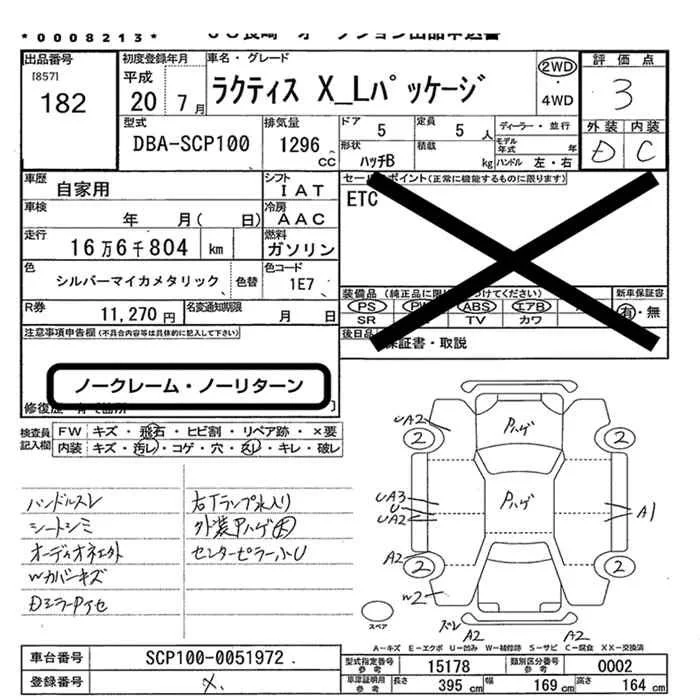 *0008213*
出品番号
[857]
182
初度登録年月
平成
20 7月
車名・グレード
ラクティス X_Lパッケージ
2WD
・
4WD
評価点
3
外装 内装
D C
型式
DBA-SCP100
排気量
1296
CC
ドア
5
定員
5人
ディーラー・並行
形状
ハッチB
積載
kg
モデル年式 年
ハンドル 左・右
車歴
自家用
シフト
IAT
車検
年 月( 日)
冷房
AAC
走行
16万6千804 km
燃料
ガソリン
色
シルバーマイカメタリック
色替
色コード
1E7
R券
11,270円
名変通知期限
月 日
セールスポイント(正常に機能するものに限ります)
ETC
装備品
PS PW ABS エアB
SR TV カワ
新車保証書
有・無
保証書・取説
注意事項申告欄(不具合内容等は具体的に記入して下さい)
ノークレーム・ノーリターン
検査員記入欄
FW キズ・飛石・ヒビ割・リペア跡・×要
内装 キズ・汚レ・コゲ・穴・スレ・キレ・破レ
ハンドルスレ
シートシミ
オーディオネエクト
Wカバーキズ
右Tランプ水入り
外装Pハゲ大
センターピラー小U
Pハゲ
Pハゲ
UA2
2
2
UA3
U
UA2
A1
A2
2
2
W2
ズレ
A2
A2
スペア
A-キズ E-エクボ U-凹み W-補修跡 S-サビ C-腐食 XX-交換済
車台番号
SCP100-0051972.
登録番号
X.
型式指定番号
参考
15178
類別区分番号
参考
0002
車庫証明用
参考
長さ
395cm
幅
169cm
高さ
164cm